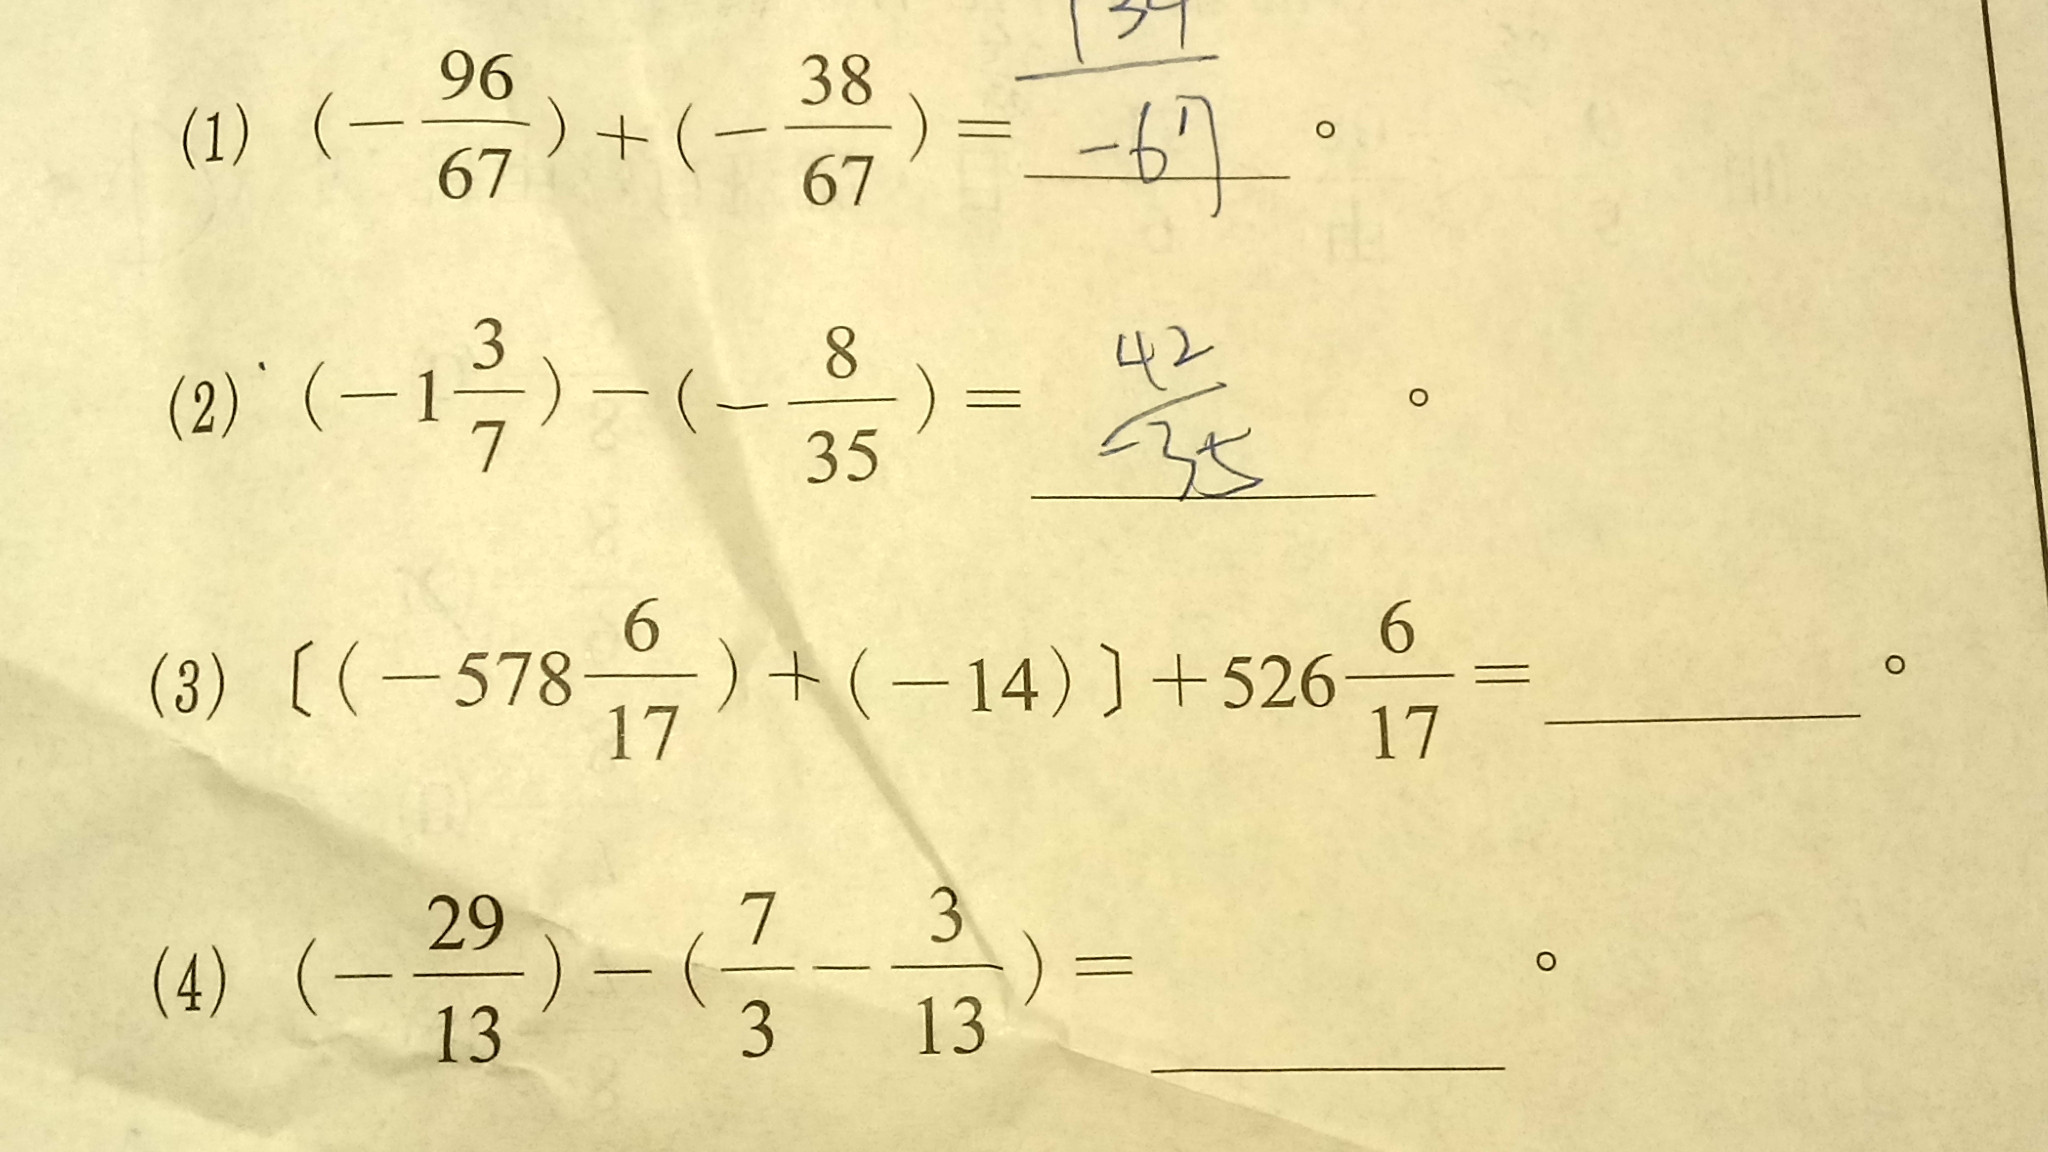 (1) (-96/67)+(-38/67)= 134/-67 。
(2) (-1 3/7)-(-8/35)= 42/-35 。
(3) 〔(-578 6/17)+(-14)〕+526 6/17=______。
(4) (-29/13)-(7/3-3/13)=______。